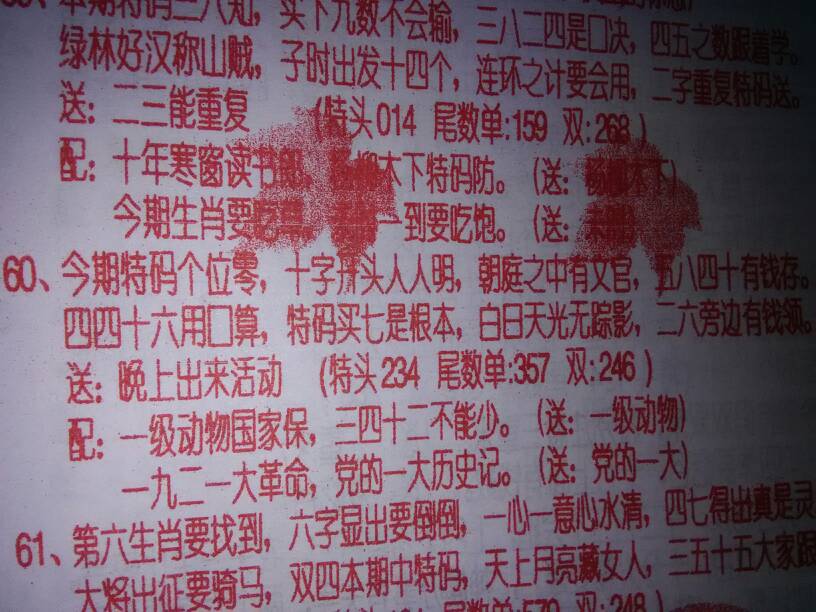 本期特码三八知，买下九数不会输，三八二四是囗决，四五之数跟着学。
绿林好汉称山贼，子时出发十四个，连环之计要会用，二字重复特码送。
送：二三能重复 (特头014 尾数单:159 双:268)
配：十年寒窗读书 木下特码防。(送： 木下)
今期生肖要 一到要吃饱。(送：
60、今期特码个位零，十字 头人人明，朝庭之中有文官， 八四十有钱存。
四四十六用囗算，特码买七是根本，白日天光无踪影，二六旁边有钱领。
送：晚上出来活动 (特头234 尾数单:357 双:246)
配：一级动物国家保，三四十二不能少。(送：一级动物)
一九二一大革命，党的一大历史记。(送：党的一大)
61、第六生肖要找到，六字显出要倒倒，一心一意心水清，四七得出真是灵
大将出征要骑马，双四本期中特码，天上月亮藏女人，三五十五大家跟